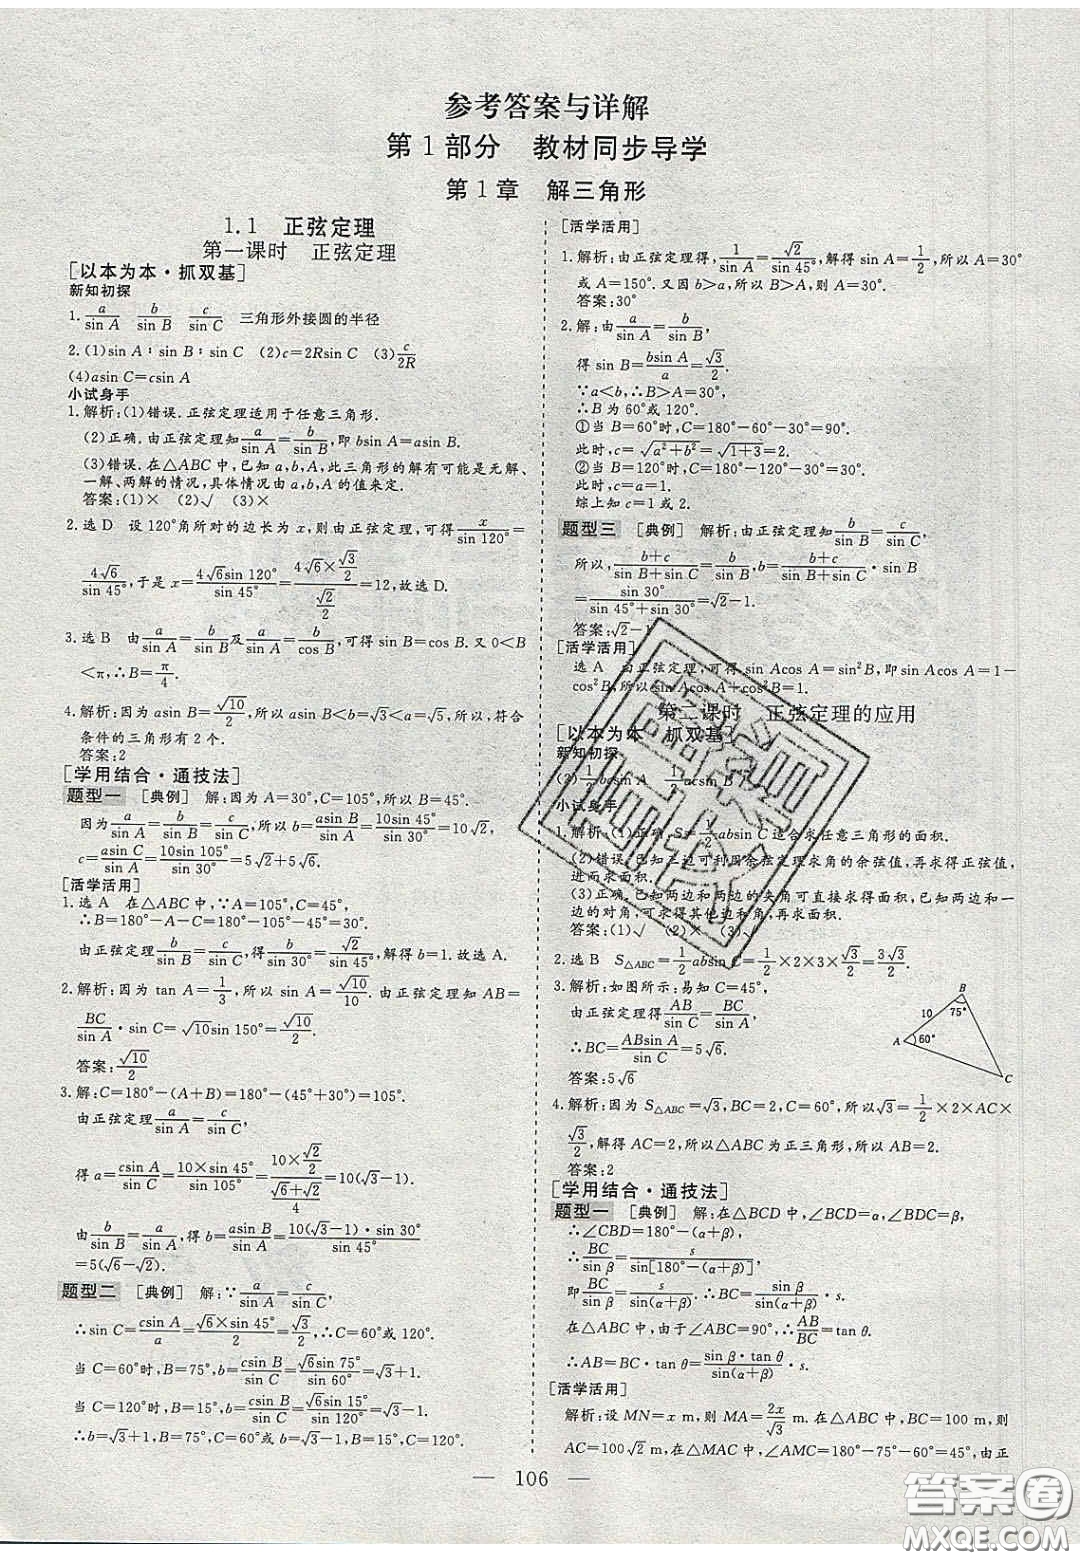 参考答案与详解
第1部分　教材同步导学
第1章　解三角形
1.1　正弦定理
第一课时　正弦定理
[以本为本·抓双基]
新知初探
1. a/sin A　b/sin B　c/sin C　三角形外接圆的半径
2.(1)sin A∶sin B∶sin C　(2)c=2Rsin C　(3)c/2R
(4)asin C=csin A
小试身手
1.解析:(1)错误.正弦定理适用于任意三角形.
(2)正确.由正弦定理知a/sin A=b/sin B,即bsin A=asin B.
(3)错误.在△ABC中,已知a,b,A,此三角形的解有可能是无解、
一解、两解的情况,具体情况由a,b,A的值来定.
答案:(1)×　(2)√　(3)×
2.选D　设120°角所对的边长为x,则由正弦定理,可得x/sin 120°=
4√6/sin 45°,于是x=4√6sin 120°/sin 45°=(4√6×√3/2)/(√2/2)=12,故选D.
3.选B　由a/sin A=b/sin B及a/sin A=b/cos B,可得sin B=cos B.又0<B
<π,∴B=π/4.
4.解析:因为asin B=√10/2,所以asin B<b=√3<a=√5,所以,符合
条件的三角形有2个.
答案:2
[学用结合·通技法]
题型一　[典例]　解:因为A=30°,C=105°,所以B=45°.
因为a/sin A=b/sin B=c/sin C,所以b=asin B/sin A=10sin 45°/sin 30°=10√2,
c=asin C/sin A=10sin 105°/sin 30°=5√2+5√6.
[活学活用]
1.选A　在△ABC中,∵A=105°,C=45°,
∴B=180°-A-C=180°-105°-45°=30°.
由正弦定理b/sin B=c/sin C,得b/sin 30°=√2/sin 45°,解得b=1.故选A.
2.解析:因为tan A=1/3,所以sin A=√10/10.由正弦定理知AB=
BC/sin A·sin C=√10sin 150°=√10/2.
答案:√10/2
3.解:C=180°-(A+B)=180°-(45°+30°)=105°.
由正弦定理a/sin A=c/sin C,
得a=csin A/sin C=10×sin 45°/sin 105°=(10×√2/2)/((√6+√2)/4)=10(√3-1).
由a/sin A=b/sin B,得b=asin B/sin A=10(√3-1)·sin 30°/sin 45°
=5(√6-√2).
题型二　[典例]　解:∵a/sin A=c/sin C,
∴sin C=csin A/a=√6×sin 45°/2=√3/2,∴C=60°或120°.
当C=60°时,B=75°,b=csin B/sin C=√6sin 75°/sin 60°=√3+1;
当C=120°时,B=15°,b=csin B/sin C=√6sin 15°/sin 120°=√3-1.
∴b=√3+1,B=75°,C=60°或b=√3-1,B=15°,C=120°.
[活学活用]
1.解析:由正弦定理得,1/sin A=√2/sin 45°,解得sin A=1/2,所以A=30°
或A=150°.又因b>a,所以B>A,则A=30°.
答案:30°
2.解:由a/sin A=b/sin B,
得sin B=bsin A/a=√3/2.
∵a<b,∴B>A=30°.
∴B为60°或120°.
①当B=60°时,C=180°-60°-30°=90°.
此时,c=√(a²+b²)=√(1+3)=2.
②当B=120°时,C=180°-120°-30°=30°.
此时,c=a=1.
综上知c=1或2.
题型三　[典例]　解析:由正弦定理知b/sin B=c/sin C,
所以,(b+c)/(sin B+sin C)=b/sin B,b=(b+c)/(sin B+sin C)·sin B
=sin 30°/(sin 45°+sin 30°)=√2-1.
答案:√2-1
[活学活用]
选A　由正弦定理,可得sin Acos A=sin²B,即sin Acos A=1-
cos²B,所以sin Acos A+cos²B=1.
第二课时　正弦定理的应用
[以本为本·抓双基]
新知初探
(2)1/2bcsin A　1/2acsin B
小试身手
1.解析:(1)正确,S=1/2absin C适合求任意三角形的面积.
(2)错误.已知三边可利用余弦定理求角的余弦值,再求得正弦值,
进而求面积.
(3)正确.已知两边和两边的夹角可直接求得面积,已知两边和
一边的对角,可求得其他边和角,再求面积.
答案:(1)√　(2)×　(3)√
2.选B　S△ABC=1/2absin C=1/2×2×3×√3/2=3√3/2.
3.解析:如图所示:易知C=45°,
由正弦定理得AB/sin C=BC/sin A,
∴BC=ABsin A/sin C=5√6.
答案:5√6
B
75°
10
A
60°
C
4.解析:因为S△ABC=√3,BC=2,C=60°,所以√3=1/2×2×AC×
√3/2,解得AC=2,所以△ABC为正三角形,所以AB=2.
答案:2
[学用结合·通技法]
题型一　[典例]　解:在△BCD中,∠BCD=α,∠BDC=β,
∴∠CBD=180°-(α+β),
∴BC/sin β=s/sin[180°-(α+β)],
即BC/sin β=s/sin(α+β).∴BC=sin β/sin(α+β)·s.
在△ABC中,由于∠ABC=90°,∴AB/BC=tan θ.
∴AB=BC·tan θ=sin β·tan θ/sin(α+β)·s.
[活学活用]
解析:设MN=x m,则MA=2x/√3 m.在△ABC中,BC=100 m,则
AC=100√2 m,在△MAC中,∠AMC=180°-75°-60°=45°,由正
— 106 —
答案圈
MXQE.COM